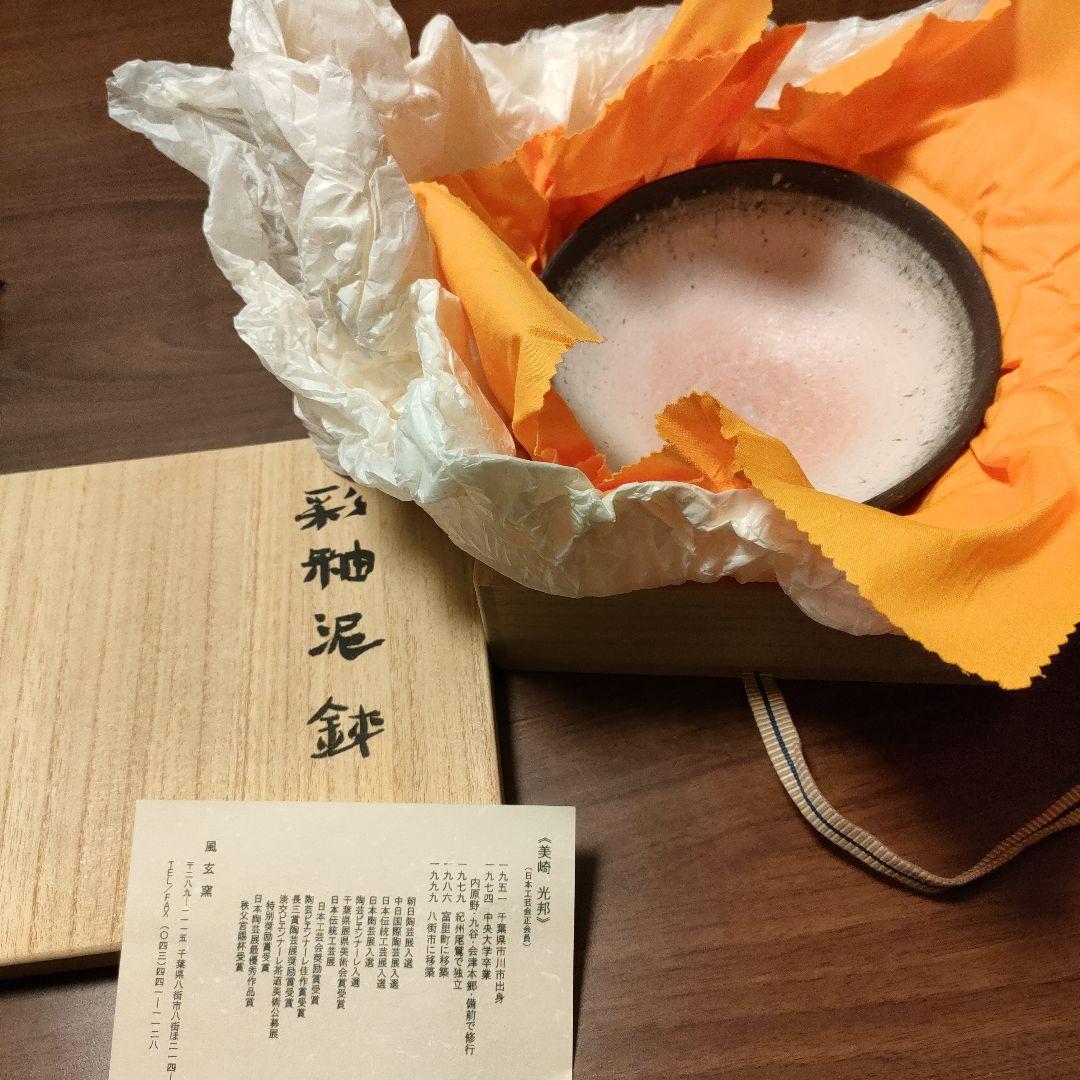 彩釉泥鉢
《美崎 光邦》
（日本工芸会正会員）
一九五一 千葉県市川市出身
一九七四 中央大学卒業
内原野・九谷・会津本郷・備前で修行
一九七九 紀州尾鷲で独立
一九八六 富里町に移築
一九九九 八街市に移築
朝日陶芸展入選
中日国際陶芸展入選
日本伝統工芸展入選
日本陶芸展入選
陶芸ビエンナーレ入選
千葉県展県美術会賞受賞
日本伝統工芸展
日本工芸会奨励賞受賞
陶芸ビエンナーレ佳作賞受賞
長三賞陶芸展奨励賞受賞
淡交ビエンナーレ茶道美術公募展
特別奨励賞受賞
日本陶芸展最優秀作品賞
秩父宮賜杯受賞
風玄窯
〒二八九ー一一一五 千葉県八街市八街ほ二一四ー
TEL／FAX（〇四三）四四一ー一一二八